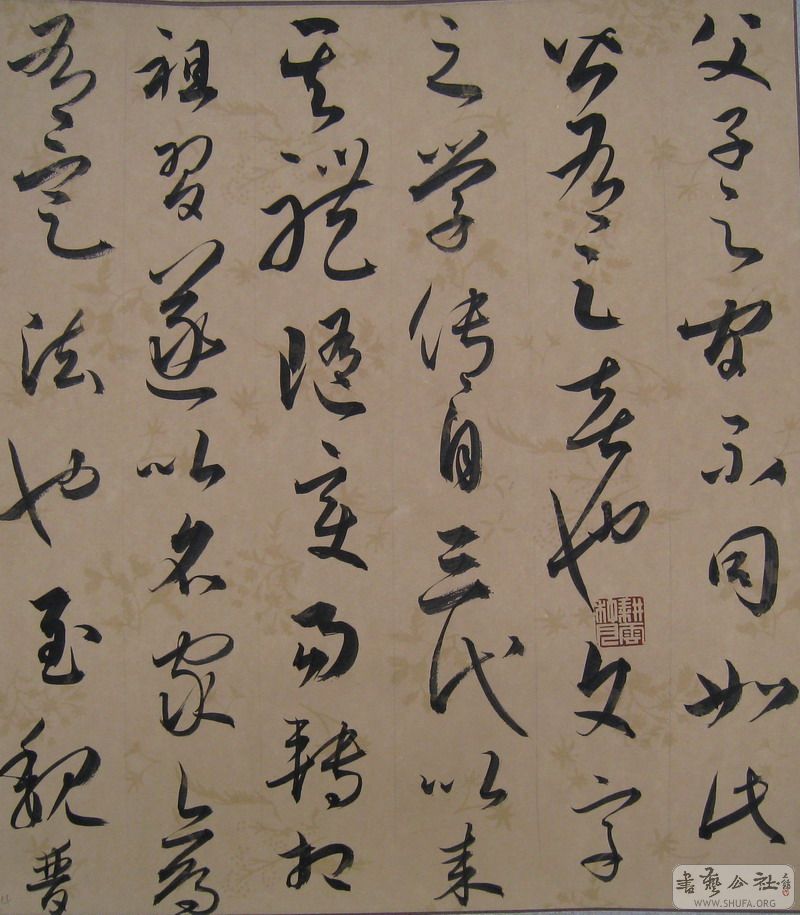 父子之間不同如此
皆有足喜也文字
之學傳自三代以來
其體隨變易轉相
祖習遂以名家亦烏
有定法也至魏晉
書藝公社
WWW.SHUFA.ORG